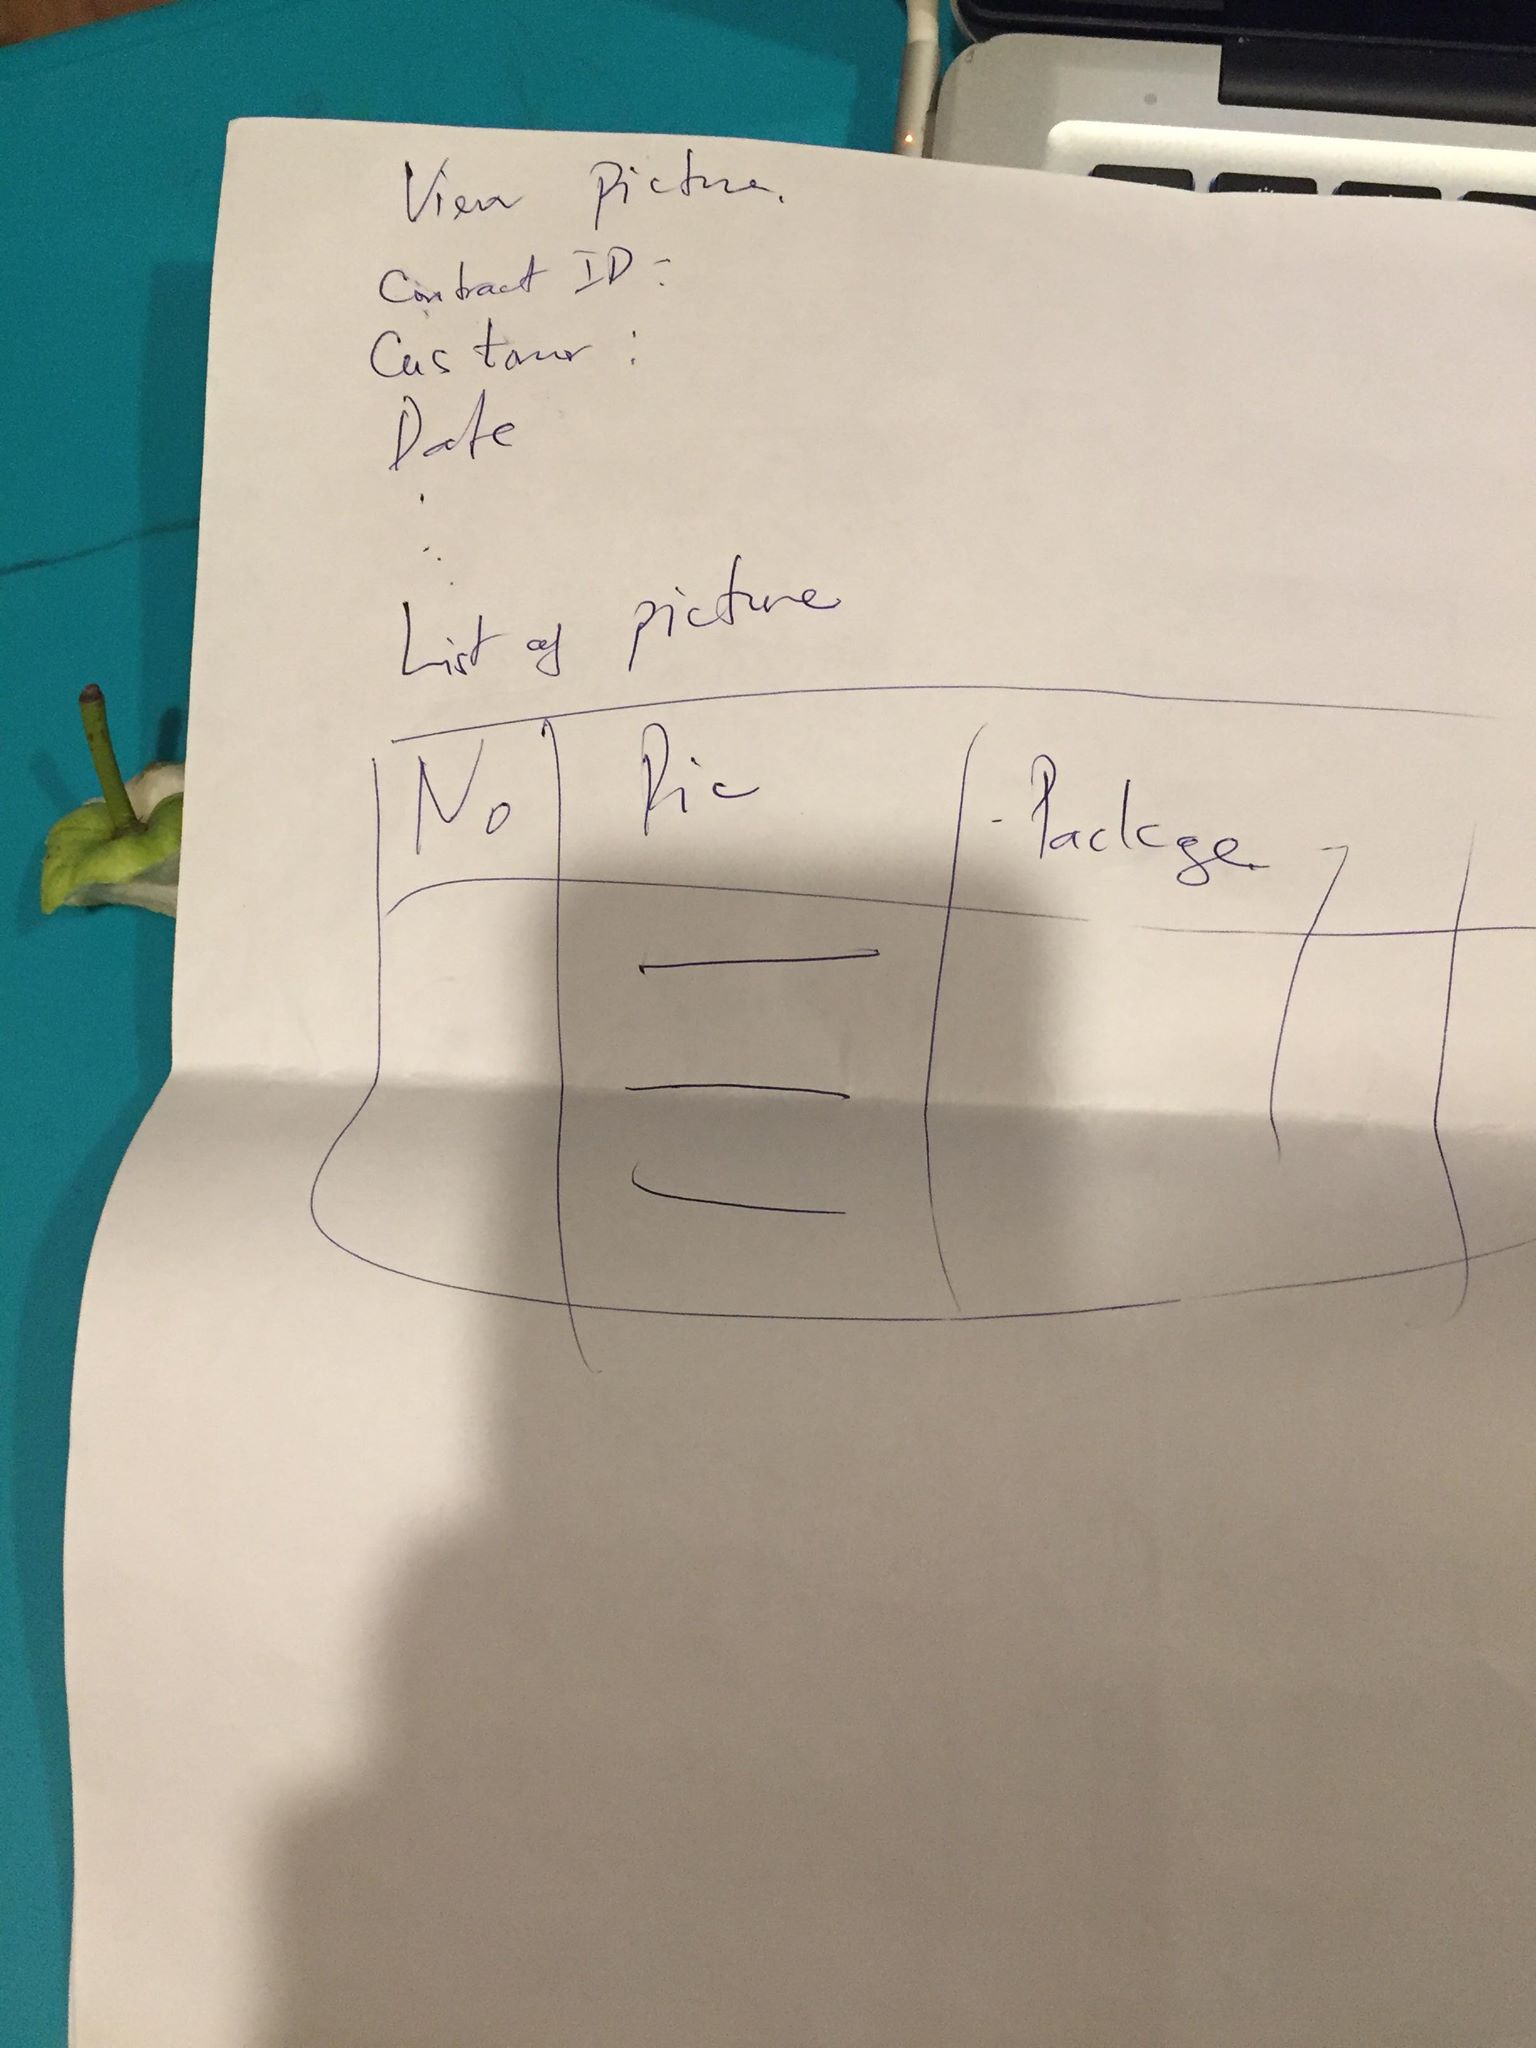 View Picture.
Contract ID :
Customer :
Date
List of picture
No Pic Package